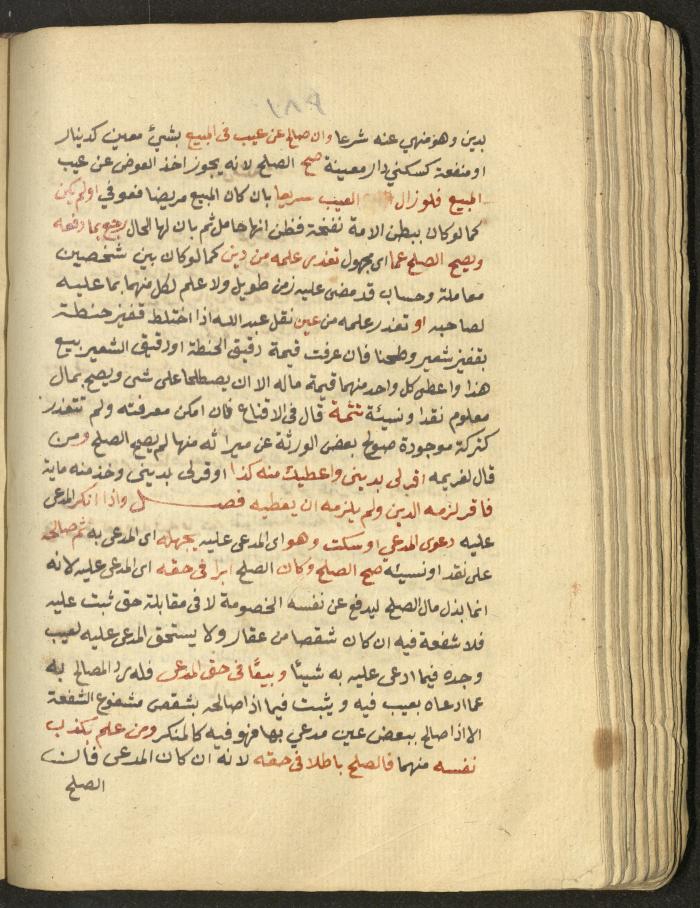 بدين وهو منهي عنه شرعا وان صالح عن عيب فى المبيع بشئ معين كدينار
او منفعة كسكنى دار معينة صح الصلح لانه يجوز اخذ العوض عن عيب
المبيع فلو زال العيب سريعا بان كان المبيع مريضا فعوفي او لم يكن
كما لو كان ببطن الامة نفخة فظن انها حامل ثم بان لها الحال رجع بما دفعه
ويصح الصلح عما اى مجهول تعذر علمه من دين كما لو كان بين شخصين
معاملة وحساب قد مضى عليه زمن طويل ولا علم لكل منهما بما عليه
لصاحبه او تعذر علمه من عين نقل عبد الله اذا اختلط قفيز حنطة
بقفيز شعير وطحنا فان عرفت قيمة دقيق الحنطة او دقيق الشعير بيع
هذا واعطى كل واحد منهما قيمة ماله الا ان يصطلحا على شى ويصح بمال
معلوم نقدا ونسيئة تتمة قال فى الاقناع فان امكن معرفته ولم تتعذر
كتركة موجودة صولح بعض الورثة عن ميراثه منها لم يصح الصلح ومن
قال لغريمه اقر لى بدينى واعطيك منه كذا او قر لى بدينى وخذ منه ماية
فاقر لزمه الدين ولم يلزمه ان يعطيه فصل واذا انكر المدعى
عليه دعوى المدعي او سكت وهو اى المدعى عليه يجهله اى المدعى به ثم صالحه
على نقد او نسيئة صح الصلح وكان الصلح ابرا فى حقه اى المدعى عليه لانه
انما بذل مال الصلح ليدفع عن نفسه الخصومة لا فى مقابلة حق ثبت عليه
فلا شفعة فيه ان كان شقصا من عقار ولا يستحق المدعى عليه لعيب
وجده فيما ادعى عليه به شيئا وبيعا فى حق المدعى فله رد المصالح به
عما ادعاه بعيب فيه ويثبت فيما اذا صالحه بشقص مشفوع الشفعة
الا اذا صالح ببعض عين مدعي بها فهو فيه كالمنكر ومن علم بكذب
نفسه منهما فالصلح باطلا فى حقه لانه ان كان المدعى فان
الصلح